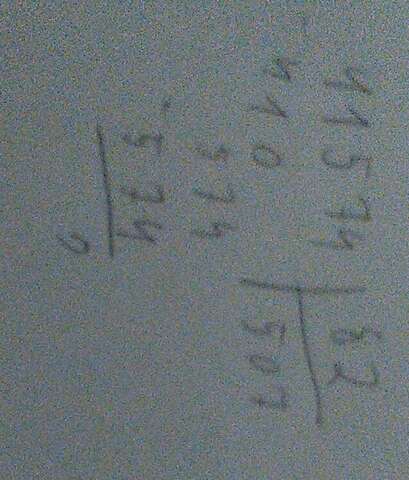 41574 | 82
410 507
574
574
0